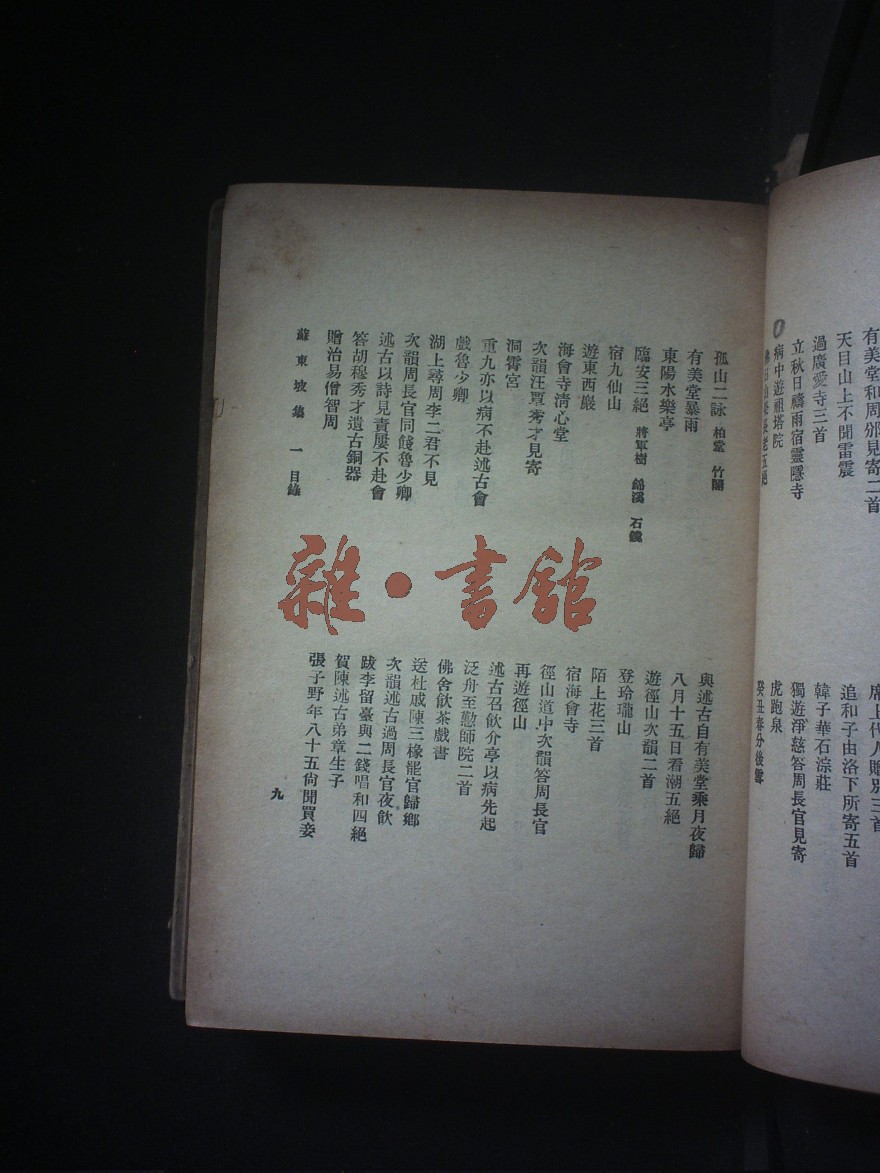 有美堂和周邠見寄二首
天目山上不聞雷震
過廣愛寺三首
立秋日禱雨宿靈隱寺
病中遊祖塔院
席上代人贈別三首
追和子由洛下所寄五首
韓子華石淙莊
獨遊淨慈答周長官見寄
虎跑泉
癸丑春分後雪
孤山二詠 柏堂 竹閣
有美堂暴雨
東陽水樂亭
臨安三絕 將軍樹 錦溪 石鏡
宿九仙山
遊東西巖
海會寺清心堂
次韻汪覃秀才見寄
洞霄宮
重九亦以病不赴述古會
戲魯少卿
湖上尋周李二君不見
次韻周長官同餞魯少卿
述古以詩見責屢不赴會
答胡穆秀才遺古銅器
贈治易僧智周
蘇東坡集 一 目錄
雜·書館
與述古自有美堂乘月夜歸
八月十五日看潮五絕
遊徑山次韻二首
登玲瓏山
陌上花三首
宿海會寺
徑山道中次韻答周長官
再遊徑山
述古召飲介亭以病先起
泛舟至懃師院二首
佛舍飲茶戲書
送杜戚陳三椽罷官歸鄉
次韻述古過周長官夜飲
跋李留臺與二錢唱和四絕
賀陳述古弟章生子
張子野年八十五尙聞買妾
九